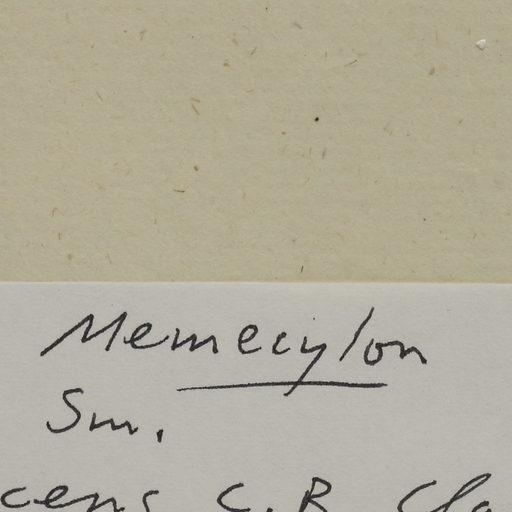 Memecylon
Sm.
cens C.B. Cla